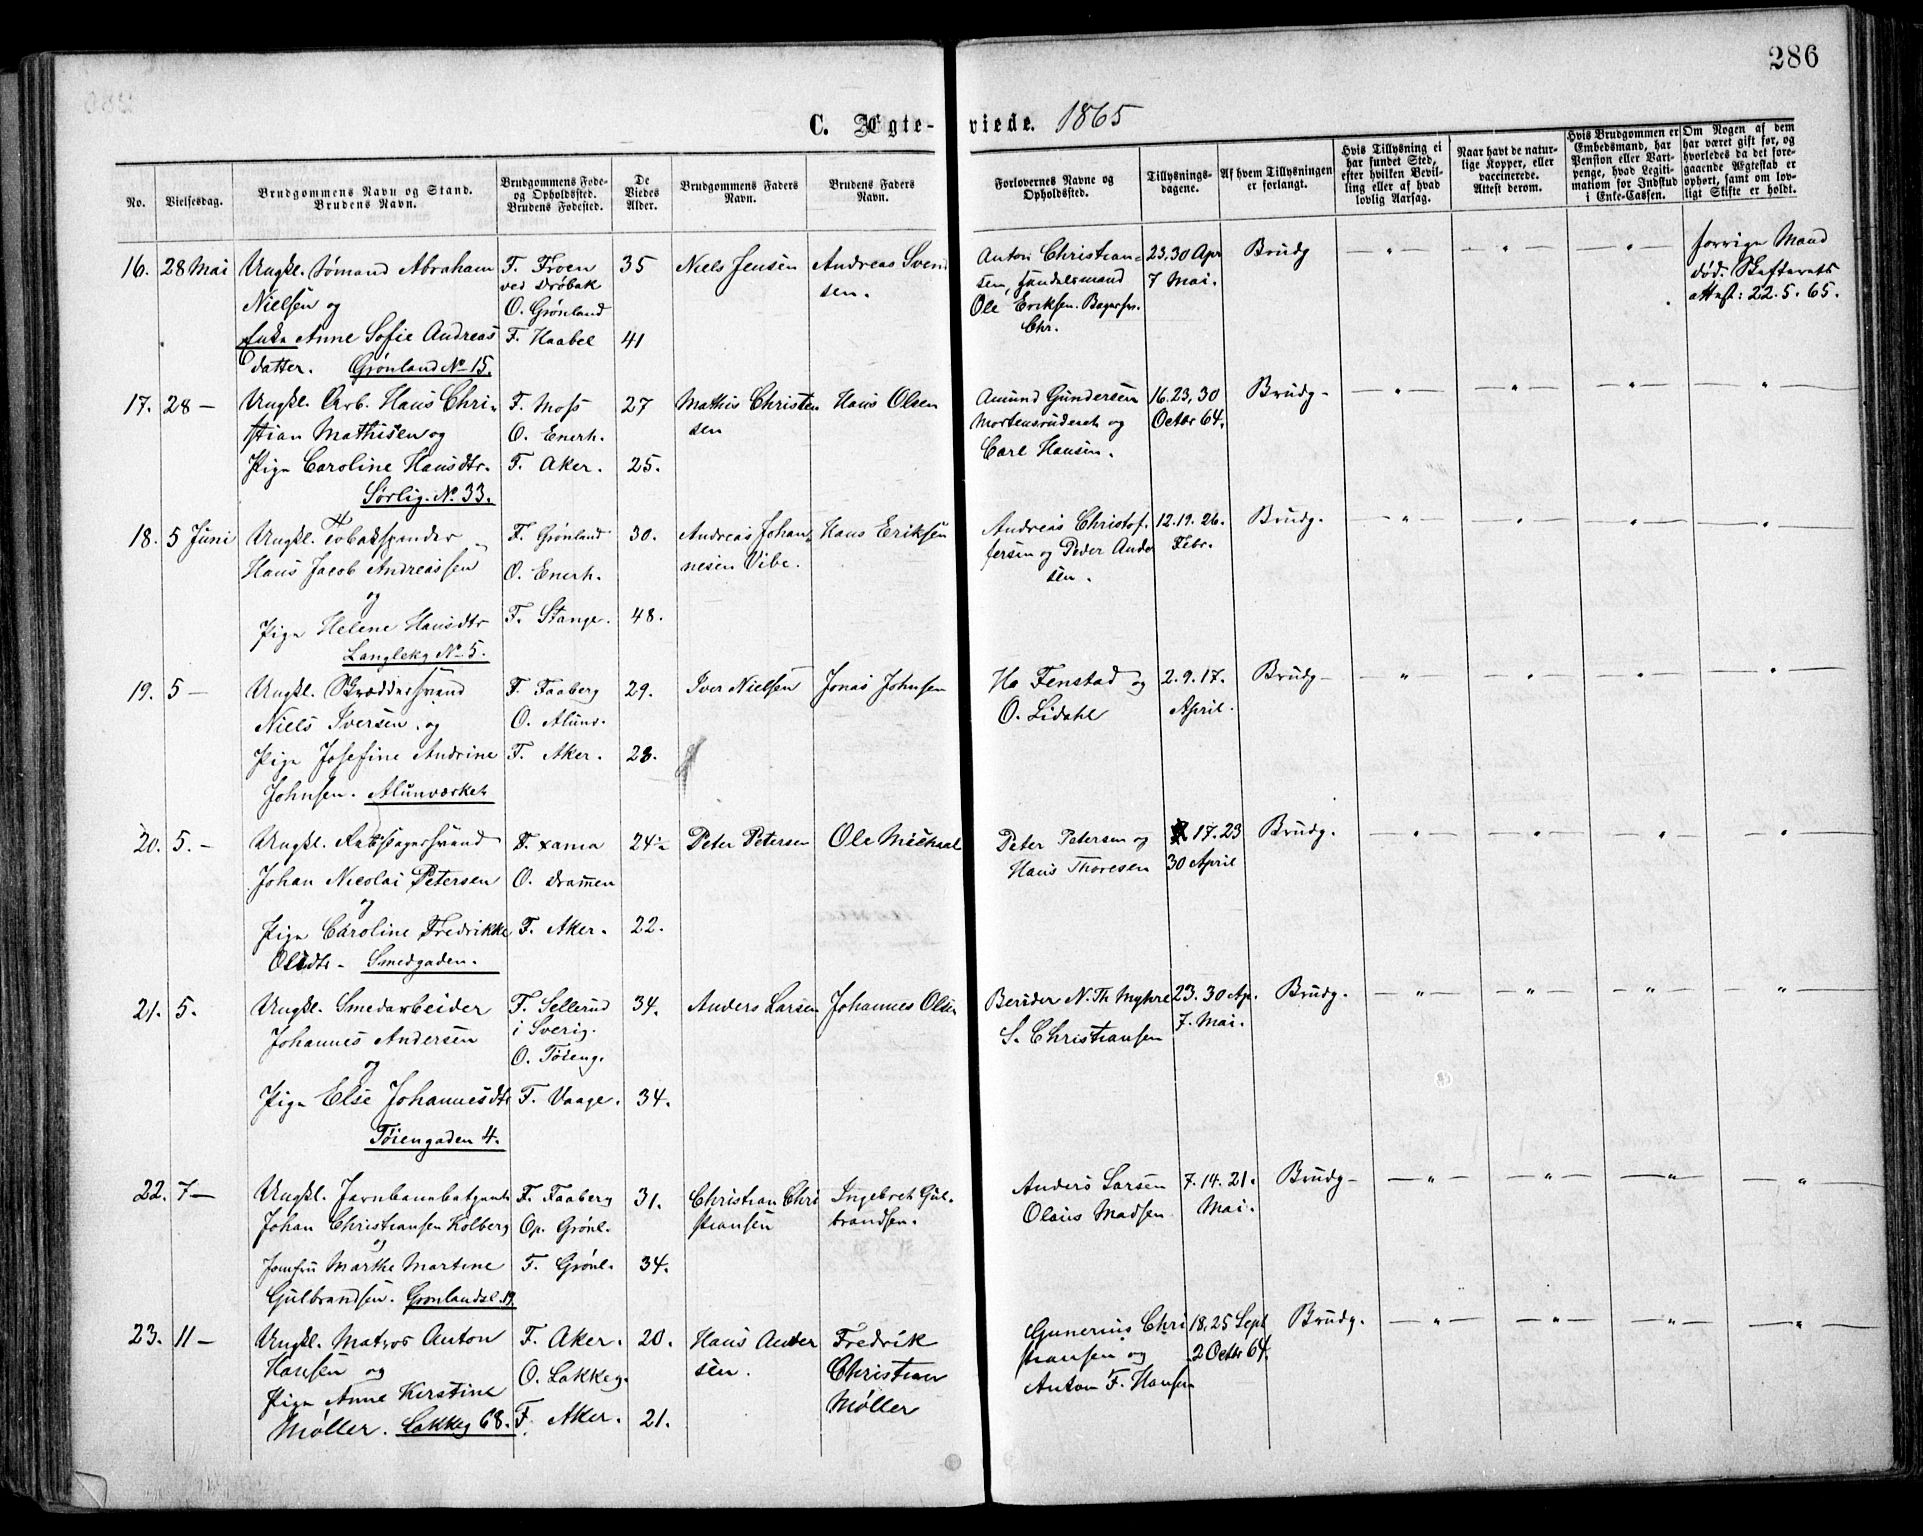 286
C. Ægte-viede. 1865
No.
Vielsesdag.
Brudgommens Navn og Stand.
Brudens Navn.
Brudgommens Føde-
og Opholdssted.
Brudens Fødested.
De
Viedes
Alder.
Brudgommens Faders
Navn.
Brudens Faders
Navn.
Forlovernes Navne og
Opholdssted.
Tillysnings-
dagene.
Af hvem Tillysningen
er forlangt.
Hvis Tillysning ei
har fundet Sted,
efter hvilken Bevil-
ling eller af hvad
lovlig Aarsag.
Naar havt de natur-
lige Kopper, eller
vaccinerede.
Attest derom.
Hvis Brudgommen er
Embedsmand, har
Pension eller Vart-
penge, hvad Legiti-
mation for Indskud
i Enke-Cassen.
Om Nogen af dem
har været gift før, og
hvorledes da det fore-
gaaende Ægteskab er
ophørt, samt om lov-
ligt Skifte er holdt.
16. 28 Mai Ungkl. Sømand Abraham F. Frøen 35 Niels Jensen Andreas Svend Anton Christian- 23. 30 Apr Brudg — " — — " — — " — forrige Mand
Nielsen og ved Drøbak sen. sen, Handelsmand 7 Mai. død. Skifterets
O. Grønland Ole Eriksen. attest: 22. 5. 65.
Chr.
Enke Anne Sofie Andreas F. Haabel 41
datter. Grønland No 15.
17. 28 — Ungkl. Arb. Hans Chri- F. Moss 27 Mathis Christen Hans Olsen Amund Gundersen 16. 23, 30 Brudg — " — — " — — " — — " —
stian Mathisen og O. Enerh. sen Mortensruderet og Octbr 64.
Pige Caroline Hansdtr. F. Aker. 25. Carl Hansen.
Sørlig. No. 33.
18. 5 Juni Ungkl. Tobakspinder F. Grønland 30. Andreas Johan- Hans Eriksen Andreas Christof- 12. 19. 26. Brudg. — " — — " — — " — — " —
Hans Jacob Andreassen O. Enerh. nesen Vibe. fersen og Peder Ander Febr.
og sen.
Pige Helene Hansdtr F. Stange. 48.
Langlekg No 5.
19. 5 — Ungkl. Skræddersvend F. Faaberg 29. Iver Nielsen Jonas Johnsen Ha Fenstad og 2. 9. 17. Brudg — " — — " — — " — — " —
Niels Iversen. og O. Alunv. O. Lidahl April.
Pige Josefine Andrine F. Aker. 23.
Johnsen. Alunværket
20. 5. — Ungkl. Johan Nicolai Petersen 24½ Peter Petersen Ole Michael Peter Petersen og 17. 23 Brudg. — " — — " — — " — — " —
O. Drammen Hans Thoresen 30 April
og
Pige Caroline Fredrikke F. Aker. 22.
Olsdtr. Smedgaden.
21. 5. Ungkl. Smedarbeider F. Sellerud 34. Anders Larsen Johannes Olsen Berider N. Th Myhre 23. 30 Ap. Brudg. — " — — " — — " — — " —
Johannes Andersen i Sverig. S. Christiansen 7. Mai.
og O. Tøieng.
Pige Else Johannesdtr F. Vaage. 34.
Tøiengaden 4.
22. 7 — Ungkl. Jernbanebetjent F. Faaberg 31. Christian Chri Ingebret Gul- Anders Larsen 7. 14. 21. Brudg — " — — " — — " — — " —
Johan Christiansen Kolberg Op. Grønl. stiansen brandsen. Olaus Madsen Mai.
og
Jomfru Marthe Martine F. Grønl. 34.
Gulbrandsen. Grønlandsl. 19.
23. 11 — Ungkl. Matros Anton F. Aker. 20. Hans Ander Fredrik Gunerius Chri 18. 25 Sept Brudg. — " — — " — — " — — " —
Hansen og O. Lakkeg. sen. Christian stiansen og 2 Octbr 64.
Pige Anne Kirstine Møller Anton F. Hansen
Møller. Lakkeg 68. F. Aker. 21.